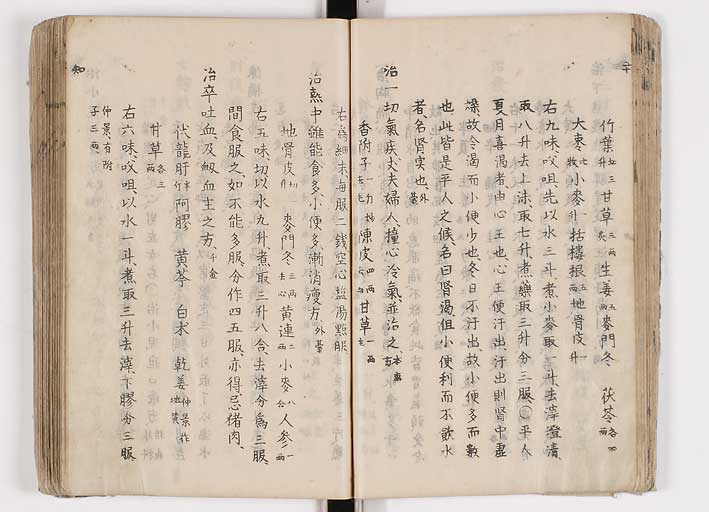 竹葉 切三升 甘草 三兩炙 生姜 五兩 麥門冬 茯苓 各四兩
大棗 廿枚 小麥 一升 栝樓根 五兩 地骨皮 一升
右九味㕮咀先以水三斗煮小麥取一斗去滓澄清
取八升去上沫取七升煮藥取三升分三服○平人
夏月喜渴者由心王也心王便汗出汗出則腎中虛
燥故令渴而小便少也冬日不汗出故小便多而數
也此皆是平人之候名曰腎渴但小便利而不飲水
者名腎實也 外䑓
治一切氣疾丈夫婦人撞心冷氣並治之
香附子 陳皮 四兩去白 甘草 一兩
右爲細末每服二錢空心塩湯點服
治熱中雖能食多小便多漸消瘦方 外臺
地骨皮 一升 麥門冬 三兩去心 黄連 二兩 小麥 八合 人参 一兩
右五味切以水九升煮取三升八合去滓分爲三服
間食服之如不能多服分作四五服亦得忌猪肉
治卒吐血及衂血主之方 千金
伏龍肝 阿膠 黄芩 白术 乾姜 仲景作地黄
甘草 各三兩
右六味㕮咀以水一斗煮取三升去滓下膠分三服
仲景有附子三兩